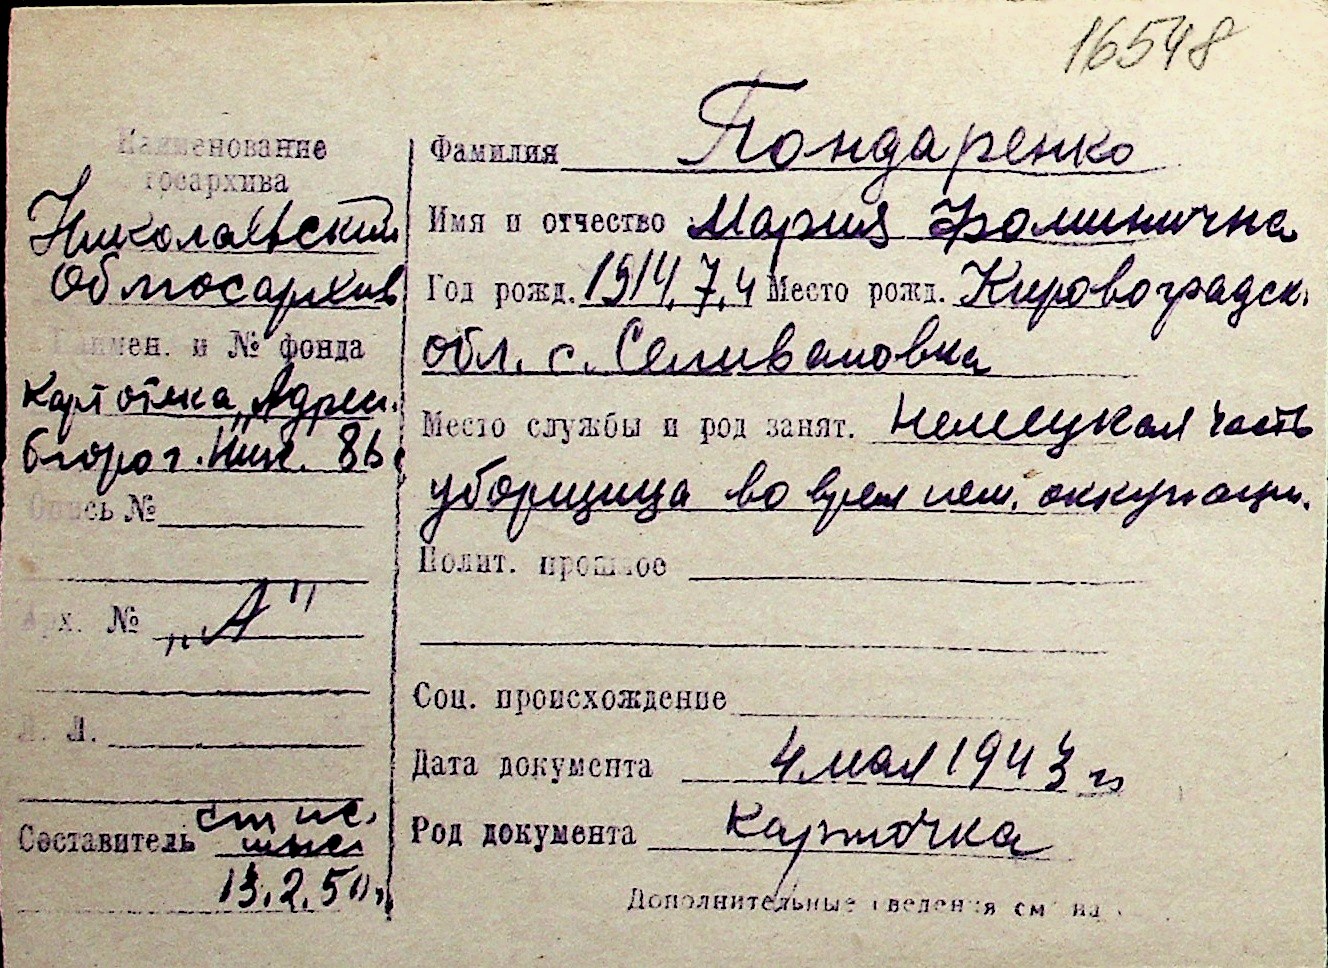 16548
Наименование
госархива
Николаевский
Облгосархив
Наимен. и № фонда
Картотека „Адрес.
бюро г. Ник.
Опись №
Арх. № „А"
Л. Л.
Составитель
13.2.50 г.
Фамилия Пондаренко
Имя и отчество Мария Фоминична
Год рожд. 1914.7.4 Место рожд. Кировоградск.
обл. с. Селивановка
Место службы и род занят. Немецкая часть
уборщица во время нем. оккупации.
Полит. прошлое
Соц. происхождение
Дата документа 4 мая 1943 г.
Род документа Карточка
Дополнительные сведения см. на